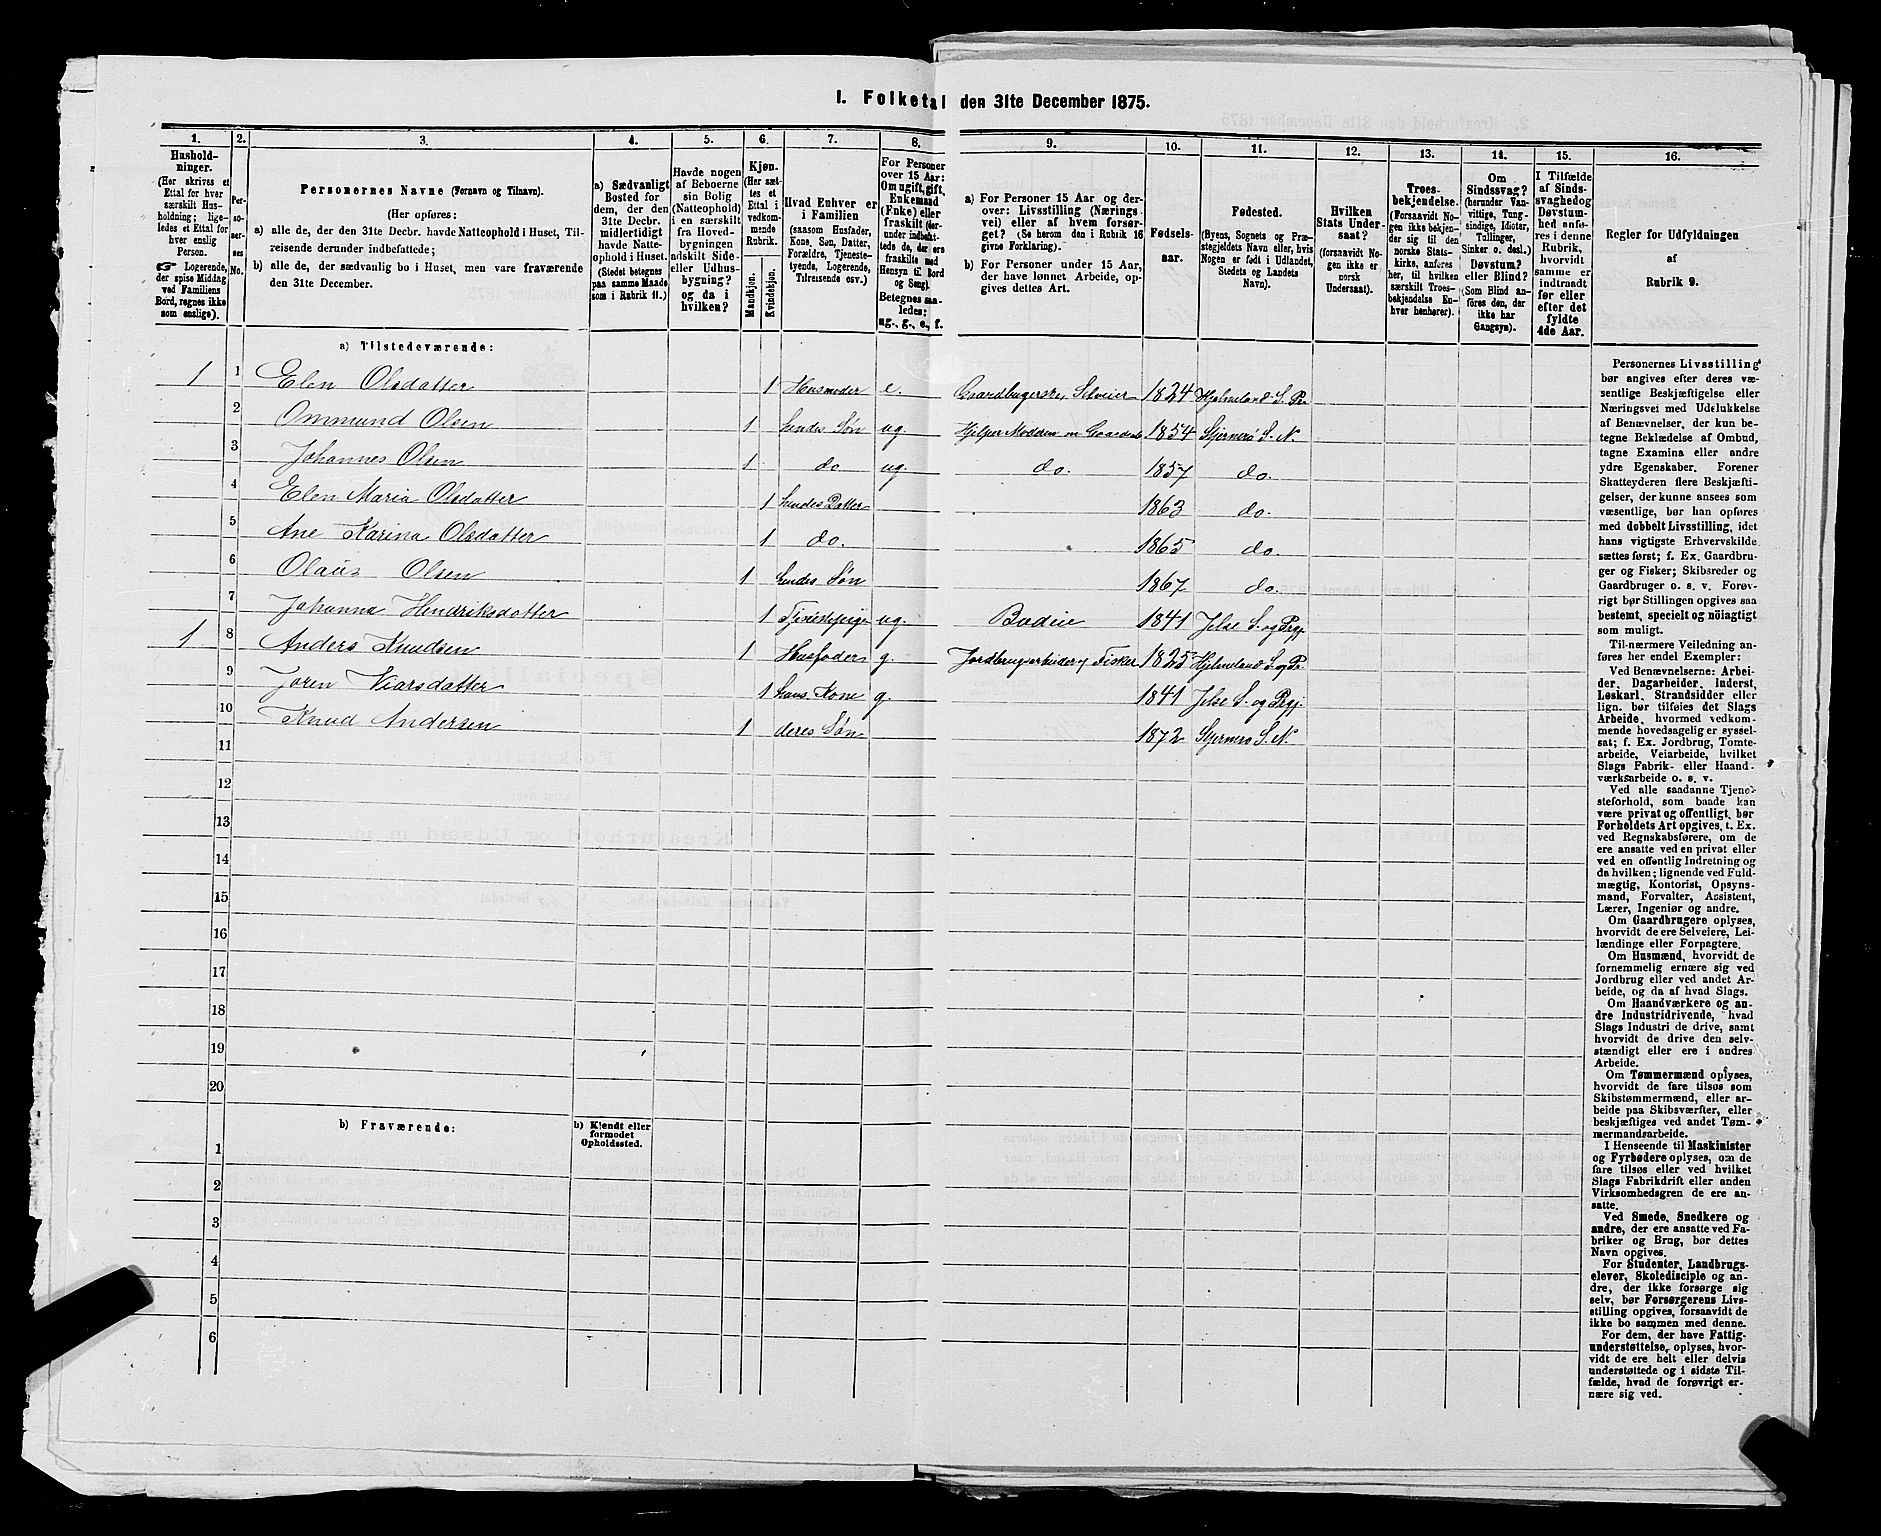 I. Folketal den 31te December 1875.
1. 2. 3. 4. 5. 6. 7. 8. 9. 10. 11. 12. 13. 14. 15. 16.
Hushold-
ninger.
(Her skrives et
Ettal for hver
særskilt Hus-
holdning; lige-
ledes et Ettal for
hver enslig
Person.
☞ Logerende,
der spise Middag
ved Familiens
Bord, regnes ikke
som enslige).
Per-
so-
ner-
nes
No.
Personernes Navne (Fornavn og Tilnavn).
(Her opføres:
a) alle de, der den 31te Decbr. havde Natteophold i Huset, Til-
reisende derunder indbefattede;
b) alle de, der sædvanlig bo i Huset, men vare fraværende
den 31te December.
a) Sædvanligt
Bosted for
dem, der den
31te Decbr.
midlertidigt
havde Natte-
ophold i Huset.
(Stedet betegnes
paa samme Maade
som i Rubrik 11.)
Havde nogen
af Beboerne
sin Bolig
(Natteophold)
i en særskilt
fra Hoved-
bygningen
adskilt Side-
eller Udhus-
bygning?
og da i
hvilken?
Kjøn.
(Her sæt-
tes et
Ettal i
vedkom-
mende
Rubrik.
Mandkjøn.
Kvindekjøn.
Hvad Enhver er
i Familien
(saasom Husfader,
Kone, Søn, Datter,
Forældre, Tjeneste-
tyende, Logerende,
Tilreisende osv.)
For Personer
over 15 Aar:
Om ugift, gift,
Enkemand
(Enke) eller
fraskilt (der-
under indbefat-
tede de, der ere
fraskilte med
Hensyn til Bord
og Seng).
Betegnes saa-
ledes:
ug., g., e., f.
a) For Personer 15 Aar og der-
over: Livsstilling (Nærings-
vei) eller af hvem forsør-
get? (Se herom den i Rubrik 16
givne Forklaring).
b) For Personer under 15 Aar,
der have lønnet Arbeide, op-
gives dettes Art.
Fødsels-
aar.
Fødested.
(Byens, Sognets og Præ-
stegjeldets Navn eller, hvis
Nogen er født i Udlandet,
Stedets og Landets
Navn).
Hvilken
Stats Under-
saat?
(forsaavidt No-
gen ikke er
norsk
Undersaat).
Troes-
bekjendelse.
(Forsaavidt No-
gen ikke bekjen-
der sig til den
norske Stats-
kirke, anføres
her, til hvilken
særskilt Troes-
bekjendelse En-
hver henhører).
Om
Sindssvag?
(herunder Van-
vittige, Tung-
sindige, Idioter,
Tullinger,
Sinker o. desl.)
Døvstum?
eller Blind?
(Som Blind an-
føres den, der
ikke har
Gangsyn).
I Tilfælde
af Sinds-
svaghed og
Døvstum-
hed anfø-
res i denne
Rubrik,
hvorvidt
samme er
indtraadt
før eller
efter det
fyldte
4de Aar.
Regler for Udfyldningen
af
Rubrik 9.
a) Tilstedeværende:
1 1 Elen Olsdatter 1 Husmoder e. Gaardbrugerske, Selveier 1824 Hjelmeland S. Pr.
2 Ommund Olsen 1 hendes Søn ug. Hjelper Moderen m Gaardsb 1854 Sjernerö S. N.
3 Johannes Olsen 1 do ug. do. 1857 do.
4 Elen Maria Olsdatter 1 hendes Datter 1863 do.
5 Ane Karina Olsdatter 1 do. 1865 do.
6 Olaus Olsen 1 hendes Søn 1867 do.
7 Johanna Hendriksdatter 1 Tjenestepige ug. Budeie 1841 Jelse S. og Prgj.
1 8 Anders Knudsen 1 Husfader g. Jordbrugarbeider, Fisker 1825 Hjelmeland S. og Pr.
9 Joren Viarsdatter 1 hans Kone g. 1841 Jelse S. og Prgj.
10 Knud Andersen 1 deres Søn 1872 Sjernerö S. N.
11
12
13
14
15
16
17
18
19
20
b) Fraværende:
b) Kjendt eller
formodet
Opholdssted.
1
2
3
4
5
6
Personernes Livsstilling
bør angives efter deres væ-
sentlige Beskjæftigelse eller
Næringsvei med Udelukkelse
af Benævnelser, der kun be-
tegne Beklædelse af Ombud,
tagne Examina eller andre
ydre Egenskaber. Forener
Skatteyderen flere Beskjæfti-
gelser, der kunne ansees som
væsentlige, bør han opføres
med dobbelt Livsstilling, idet
hans vigtigste Erhvervskilde
sættes først; f. Ex. Gaardbru-
ger og Fisker; Skibsreder og
Gaardbruger o. s. v. Forøv-
rigt bør Stillingen opgives saa
bestemt, specielt og nøiagtigt
som muligt.
Til nærmere Veiledning an-
føres her endel Exempler:
Ved Benævnelserne: Arbei-
der, Dagarbeider, Inderst,
Løskarl, Strandsidder eller
lign. bør tilføies det Slags
Arbeide, hvormed vedkom-
mende hovedsagelig er syssel-
sat; f. Ex. Jordbrug, Tomte-
arbeide, Veiarbeide, hvilket
Slags Fabrik- eller Haand-
værksarbeide o. s. v.
Ved alle saadanne Tjene-
steforhold, som baade kan
være privat og offentligt, bør
Forholdets Art opgives, t. Ex.
ved Regnskabsførere, om de
ere ansatte ved en privat eller
ved en offentlig Indretning og
da hvilken; lignende ved Fuld-
mægtig, Kontorist, Opsyns-
mand, Forvalter, Assistent,
Lærer, Ingeniør og andre.
Om Gaardbrugere oplyses,
hvorvidt de ere Selveiere, Lei-
lændinge eller Forpagtere.
Om Husmænd, hvorvidt de
fornemmelig ernære sig ved
Jordbrug eller ved andet Ar-
beide, og da af hvad Slags.
Om Haandværkere og an-
dre Industridrivende, hvad
Slags Industri de drive, samt
hvorvidt de drive den selv-
stændigt eller ere i andres
Arbeide.
Om Tømmermænd oplyses,
hvorvidt de fare tilsøs som
Skibstømmermænd, eller ar-
beide paa Skibsværfter, eller
beskjæftiges ved andet Tøm-
mermandsarbeide.
I Henseende til Maskinister
og Fyrbødere oplyses, om de
fare tilsøs eller ved hvilket
Slags Fabrikdrift eller anden
Virksomhedsgren de ere an-
satte.
Ved Smede, Snedkere og
andre, der ere ansatte ved Fa-
briker og Brug, bør dettes
Navn opgives.
For Studenter, Landbrugs-
elever, Skoledisciple og an-
dre, der ikke forsørge sig
selv, bør Forsørgerens Livs-
stilling opgives, forsaavidt de
ikke bo sammen med denne.
For dem, der have Fattig-
understøttelse, oplyses, hvor-
vidt de ere helt eller delvis
understøttede og i sidste Til-
fælde, hvad de forøvrigt er-
nære sig ved.